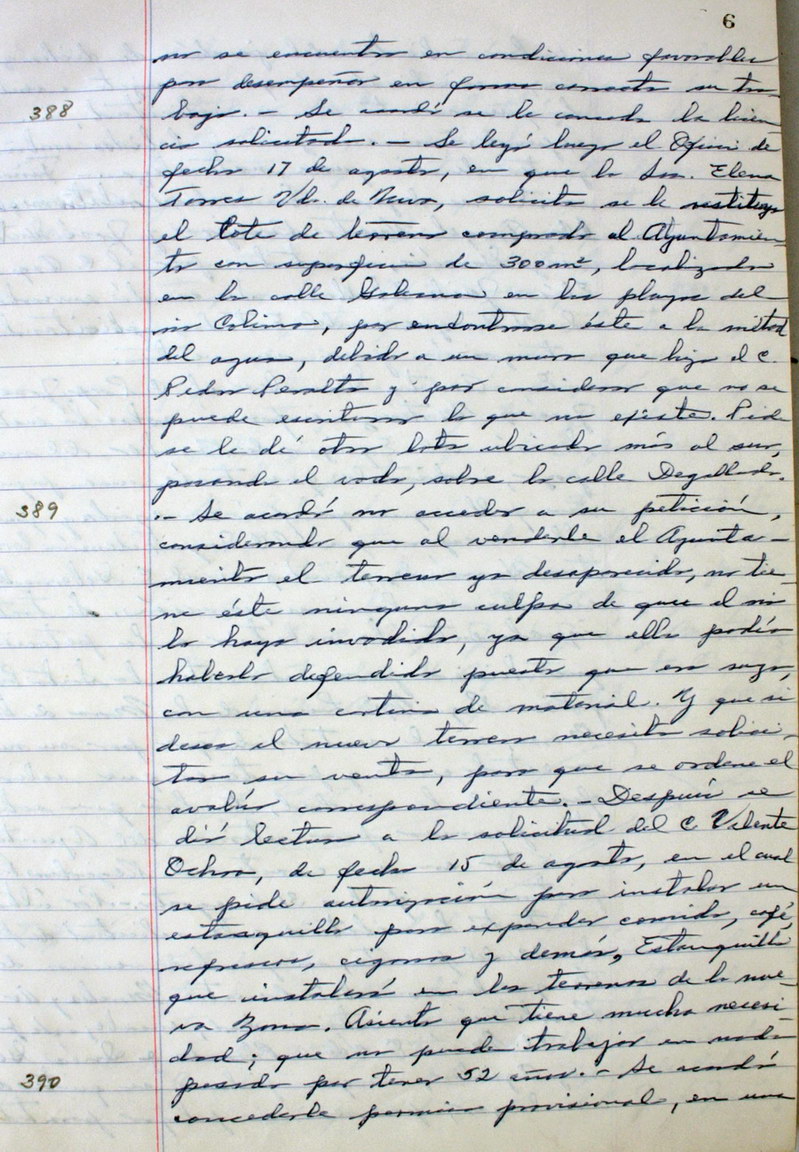 6
no se encuentra en condiciones favorables
para desempeñar en forma correcta su tra-
388 bajo. - Se acordó se le conceda la licen
cia solicitada. - Se leyó luego el Oficio de
fecha 17 de agosto, en que la Sra. Elena
Torres Vda. de Nava, solicita se le restituya
el lote de terreno comprado al Ayuntamien
to con superficie de 300 m², localizado
en la calle Galeana en las playas del
río Colima, por encontrarse éste a la mitad
del agua, debido a un muro que hizo el C.
Pedro Peralta y por considerar que no se
puede escriturar lo que no existe. Pide
se le dé otro lote ubicado más al sur,
pasando el vado, sobre la calle Degollado.
389 .- Se acordó no acceder a su petición,
considerando que al venderle el Ayunta-
miento el terreno ya desaparecido, no tie-
ne éste ninguna culpa de que el río
lo haya invadido, ya que ella podía
haberlo defendido puesto que era suyo,
con una cortina de material. Y que si
desea el nuevo terreno necesita solici-
tar su venta, para que se ordene el
avalúo correspondiente. - Después se
dió lectura a la solicitud del C. Valente
Ochoa, de fecha 15 de agosto, en el cual
se pide autorización para instalar un
estanquillo para expender comida, café,
refrescos, cigarros y demás, Estanquillo
que instalará en los terrenos de la nue-
va Zona. Asienta que tiene mucha necesi-
dad; que no puede trabajar en nada
390 pesado por tener 52 años. - Se acordó
concederle permiso provisional, en una